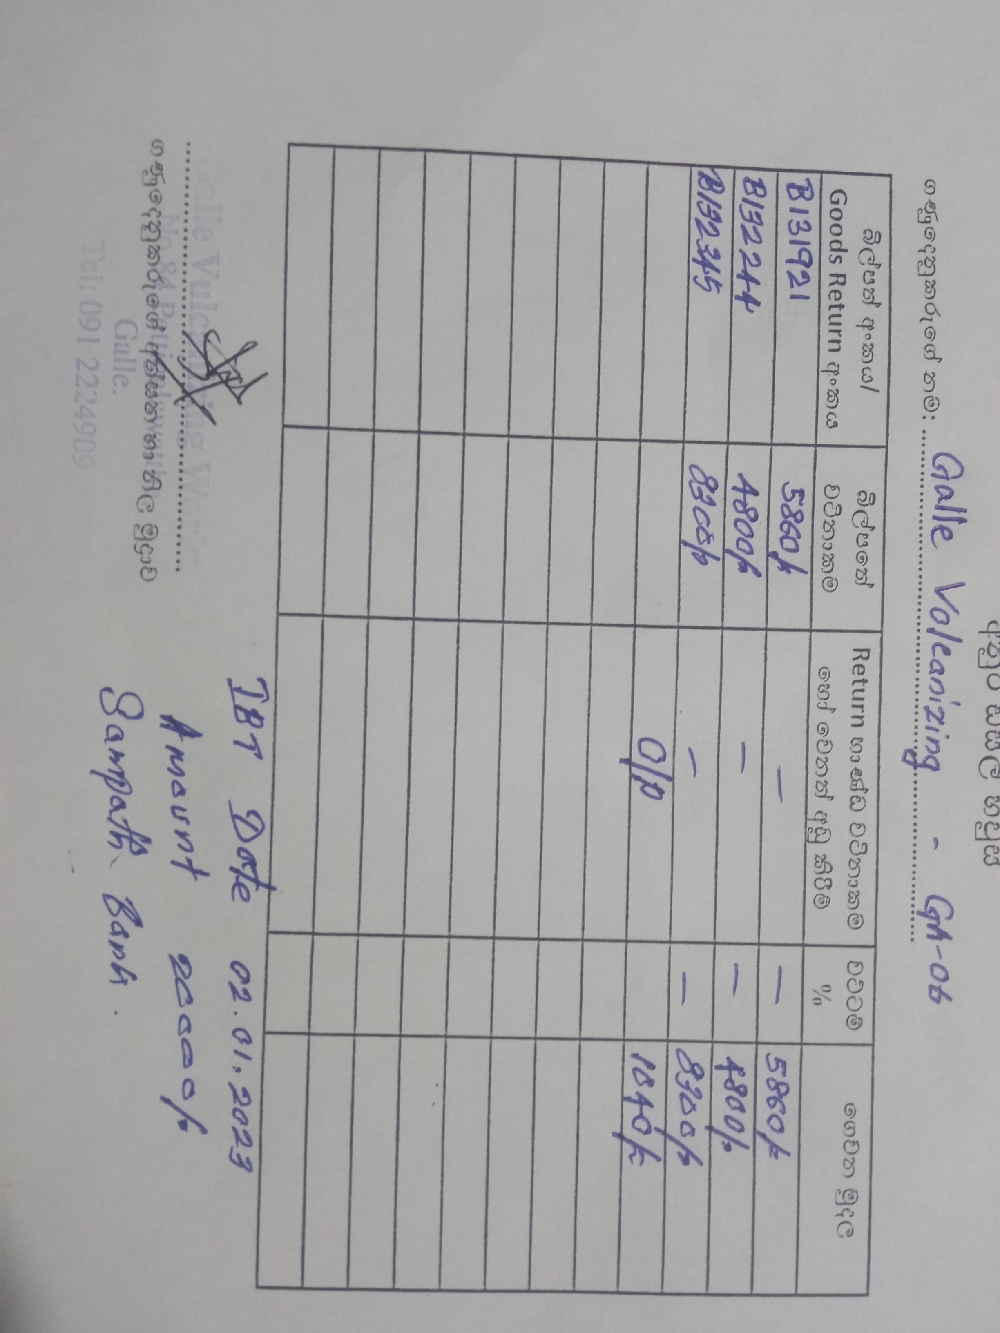 ගණුදෙනුකරුගේ නම: Galle Volcanizing - GA-06
බිල්පත් අංකය/ Goods Return අංකය
බිල්පතේ වටිනාකම
Return භාණ්ඩ වටිනාකම හෝ වෙනත් අඩු කිරීම්
වට්ටම් %
ගෙවන මුදල
B131921 5860/- — — 5860/-
B132244 4800/- — — 4800/-
B132345 8300/- — — 8300/-
O/P 1040/-
IBT Date 02.01.2023
Amount 20000/-
Sampath Bank.
Galle Vulcanizing Works
Galle.
Tel: 091 2224909
ගණුදෙනුකරුගේ අත්සන හා නිල මුද්‍රාව